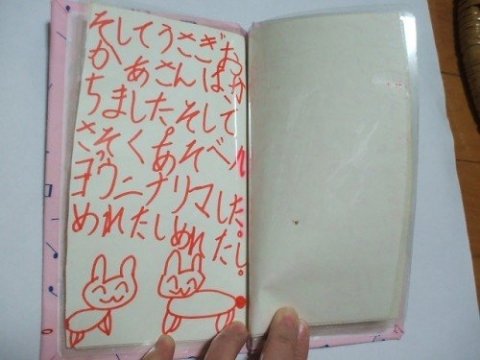 そしてうさぎお
かあさんは、か
ちました。そして
さっそくあそべん
ヨウニナリマした。
めれたしめれたし。